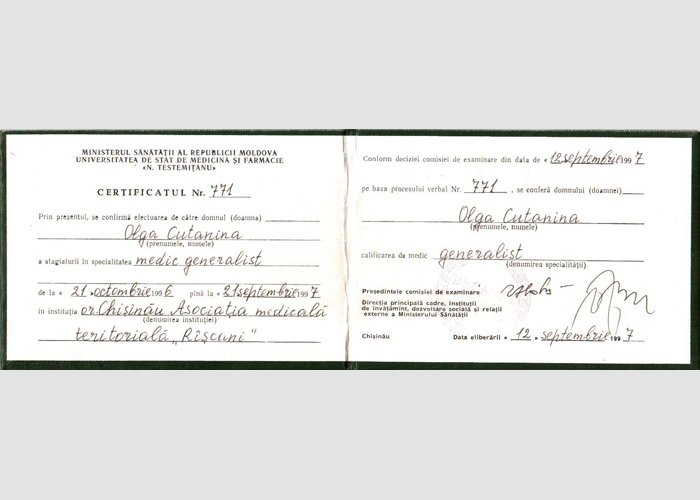 MINISTERUL SĂNĂTĂȚII AL REPUBLICII MOLDOVA
UNIVERSITATEA DE STAT DE MEDICINĂ ȘI FARMACIE
«N. TESTEMIȚANU»
CERTIFICATUL Nr. 771
Prin prezentul, se confirmă efectuarea de către domnul (doamna)
Olga Cutanina
(prenumele, numele)
a stagiaturii în specialitatea medic generalist
de la « 21 » octombrie 1996 pînă la « 21 septembrie 1997
în instituția or. Chișinău Asociația medicală
(denumirea instituției)
teritorială „Rîșcani"
Conform deciziei comisiei de examinare din data de « 12 septembrie 1997
pe baza procesului verbal Nr. 771, se conferă domnului (doamnei)
Olga Cutanina
(prenumele, numele)
calificarea de medic generalist
(denumirea specialității)
Președintele comisiei de examinare
Direcția principală cadre, instituții
de învățămînt, dezvoltare socială și relații
externe a Ministerului Sănătății
Chișinău Data eliberării « 12 » septembrie 1997